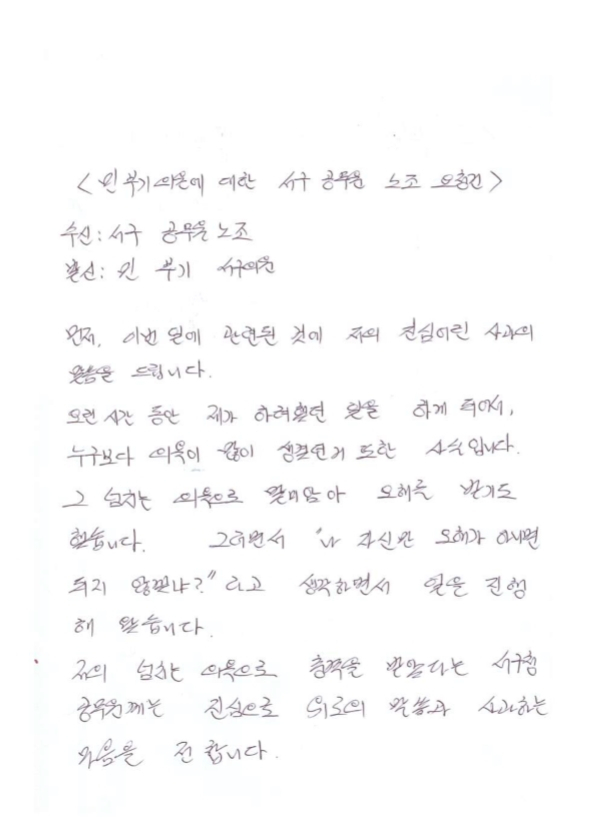 <민부기의원에 대한 서구 공무원 노조 요청건>
수신: 서구 공무원 노조
발신: 민 부기 서구의원
먼저, 이번 일에 관련된 것에 저의 진심어린 사과의
말씀을 드립니다.
오랜 시간 동안 제가 하려했던 일을 하게 되어서,
누구보다 의욕이 많이 생겼던거 또한 사실입니다.
그 넘치는 의욕으로 말미암아 오해를 받기도
했습니다. 그러면서 "나 자신만 오해가 아니면
되지 않겠냐?" 라고 생각하면서 일을 진행
해 왔습니다.
저의 넘치는 의욕으로 충격을 받았다는 서구청
공무원께는 진심으로 위로의 말씀과 사과하는
마음을 전합니다.